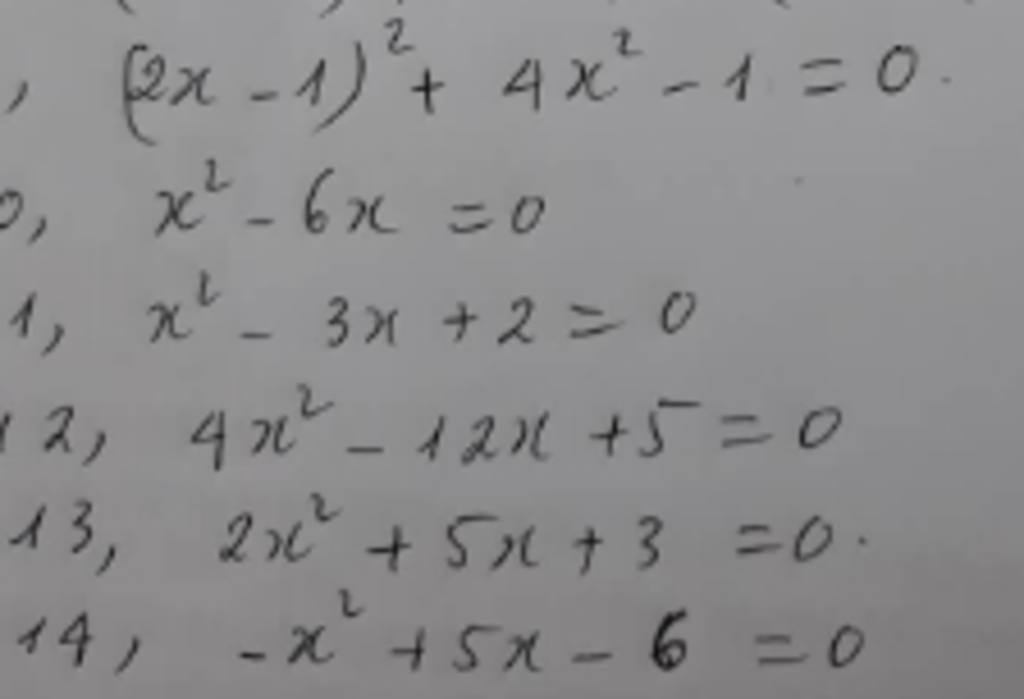 , (2x - 1)² + 4x² - 1 = 0.
0, x² - 6x = 0
1, x² - 3x + 2 = 0
12, 4x² - 12x + 5 = 0
13, 2x² + 5x + 3 = 0.
14, -x² + 5x - 6 = 0